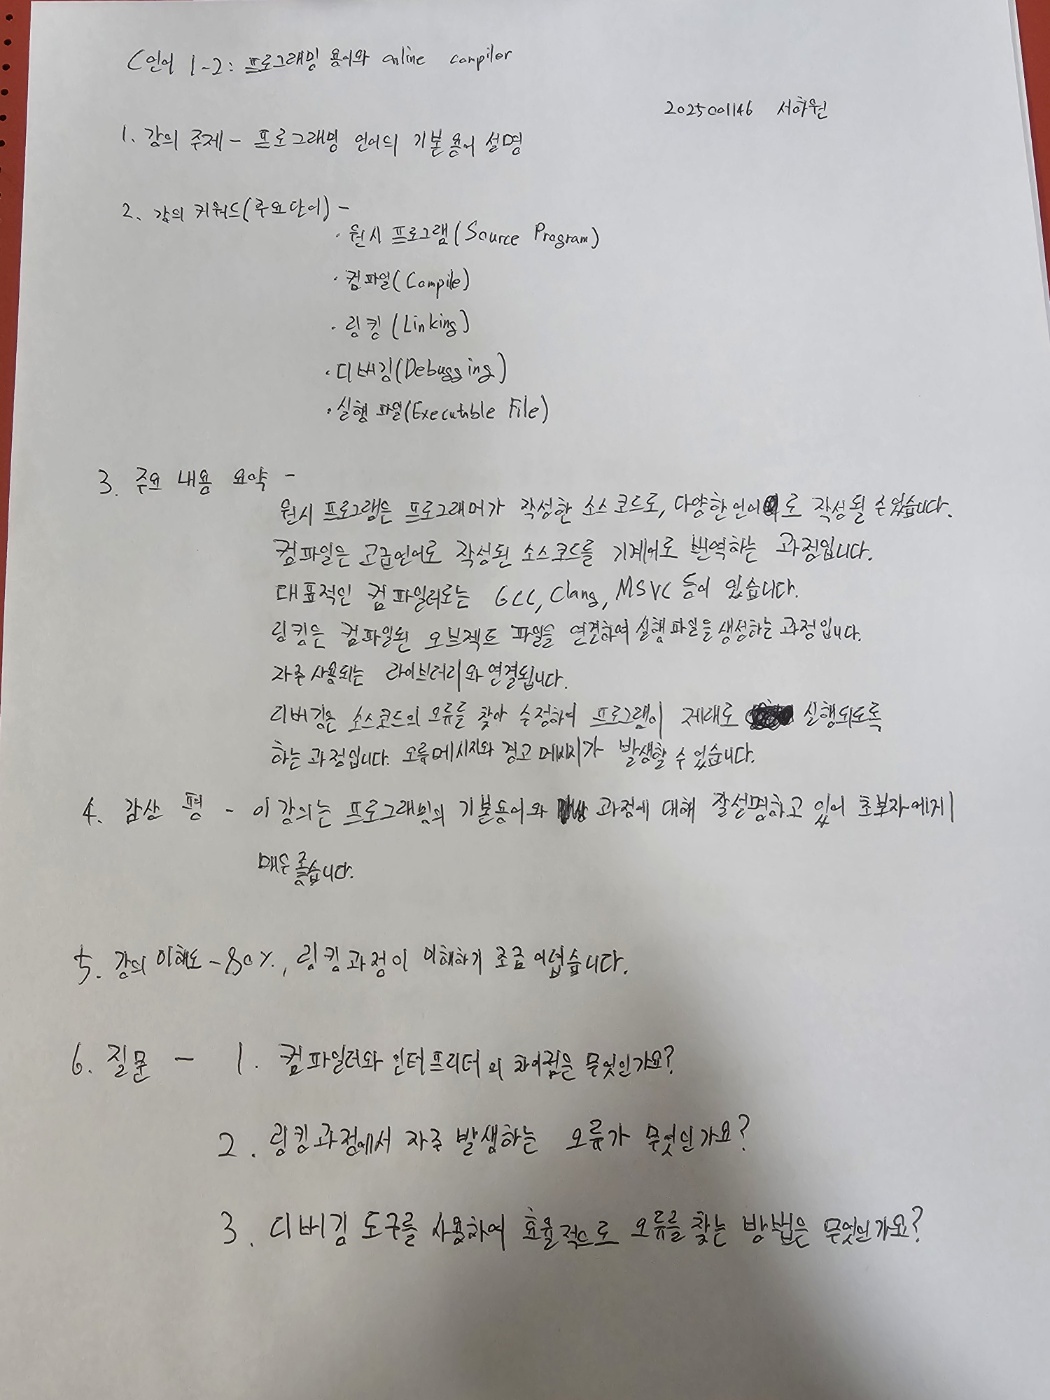 C언어 1-2: 프로그래밍 용어와 online compiler
2025001146 서하원
1. 강의 주제 - 프로그래밍 언어의 기본 용어 설명
2. 강의 키워드(주요 단어) -
· 원시 프로그램(Source Program)
· 컴파일(Compile)
· 링킹(Linking)
· 디버깅(Debugging)
· 실행 파일(Executable File)
3. 주요 내용 요약 -
원시 프로그램은 프로그래머가 작성한 소스코드로, 다양한 언어로 작성될 수 있습니다.
컴파일은 고급언어로 작성된 소스코드를 기계어로 번역하는 과정입니다.
대표적인 컴파일러로는 GCC, Clang, MSVC 등이 있습니다.
링킹은 컴파일된 오브젝트 파일을 연결하여 실행 파일을 생성하는 과정입니다.
자주 사용되는 라이브러리와 연결됩니다.
디버깅은 소스코드의 오류를 찾아 수정하여 프로그램이 제대로 실행되도록
하는 과정입니다. 오류메시지와 경고 메시지가 발생할 수 있습니다.
4. 감상 평 - 이 강의는 프로그래밍의 기본용어와 과정에 대해 잘설명하고 있어 초보자에게
매우 좋습니다.
5. 강의 이해도 - 80%, 링킹 과정이 이해하기 조금 어렵습니다.
6. 질문 - 1. 컴파일러와 인터프리터의 차이점은 무엇인가요?
2. 링킹 과정에서 자주 발생하는 오류가 무엇인가요?
3. 디버깅 도구를 사용하여 효율적으로 오류를 찾는 방법은 무엇인가요?